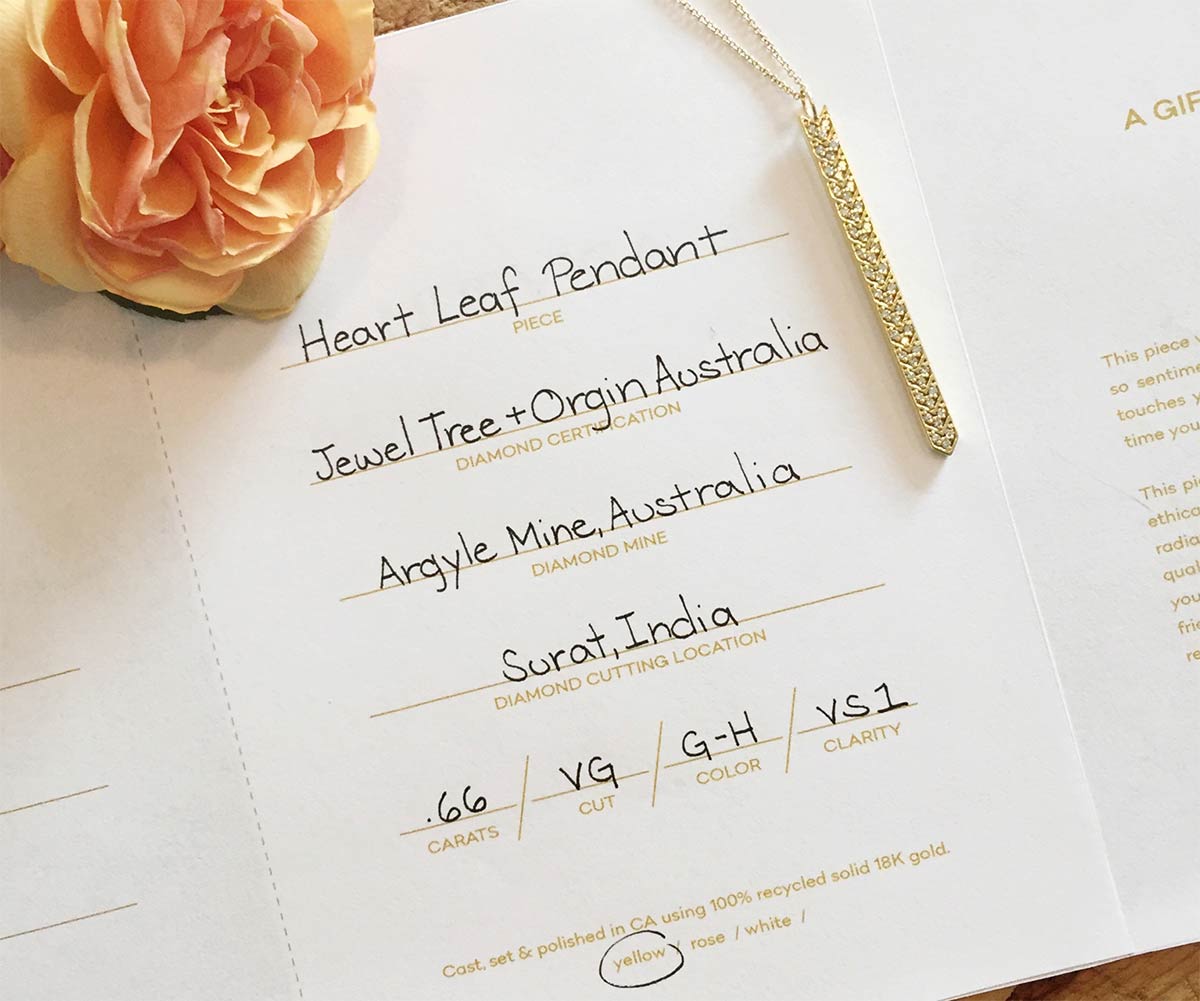 Heart Leaf Pendant
PIECE
Jewel Tree + Orgin Australia
DIAMOND CERTIFICATION
Argyle Mine, Australia
DIAMOND MINE
Surat, India
DIAMOND CUTTING LOCATION
.66 / VG / G-H / VS1
CARATS CUT COLOR CLARITY
Cast, set & polished in CA using 100% recycled solid 18K gold.
yellow / rose / white /
A
This piece
so
touches
time you
This